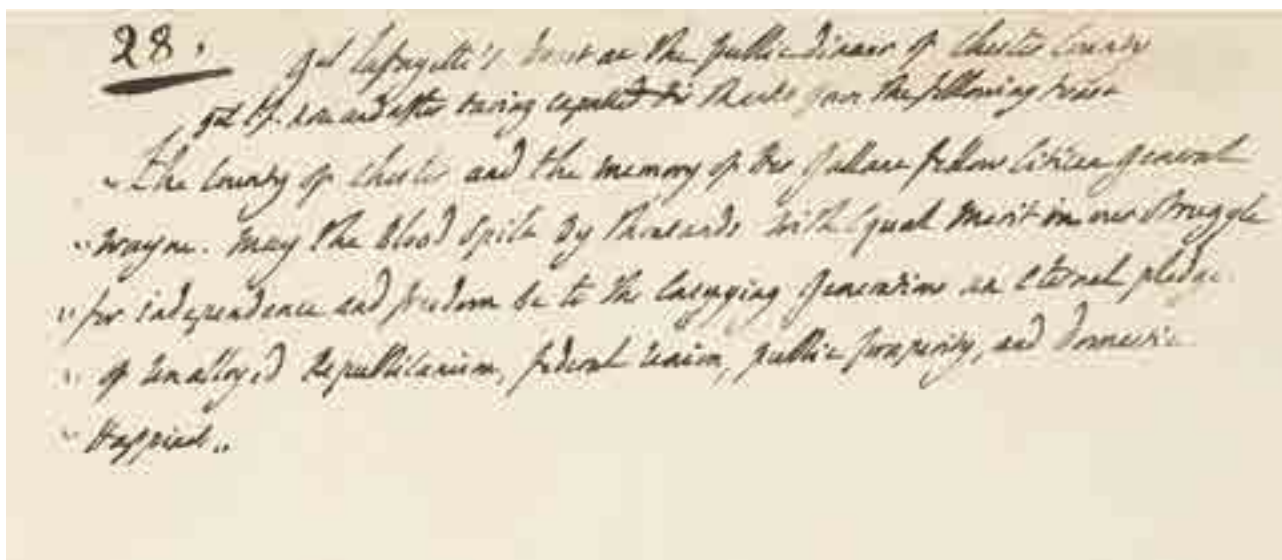 28.
Gel Lafayette's toast at the public dinner of Chester County
gel L. rose and after having expressed his thanks gave the following toast
"The County of Chester and the memory of her Gallant fellow Citizen General
" Wayne. May the blood spilt by thousands with equal merit in our Struggle
" for independence and freedom be to the Ensuing Generations an eternal pledge
" of unalloyed Republicanism, federal union, public prosperity, and domestic
" Happines"